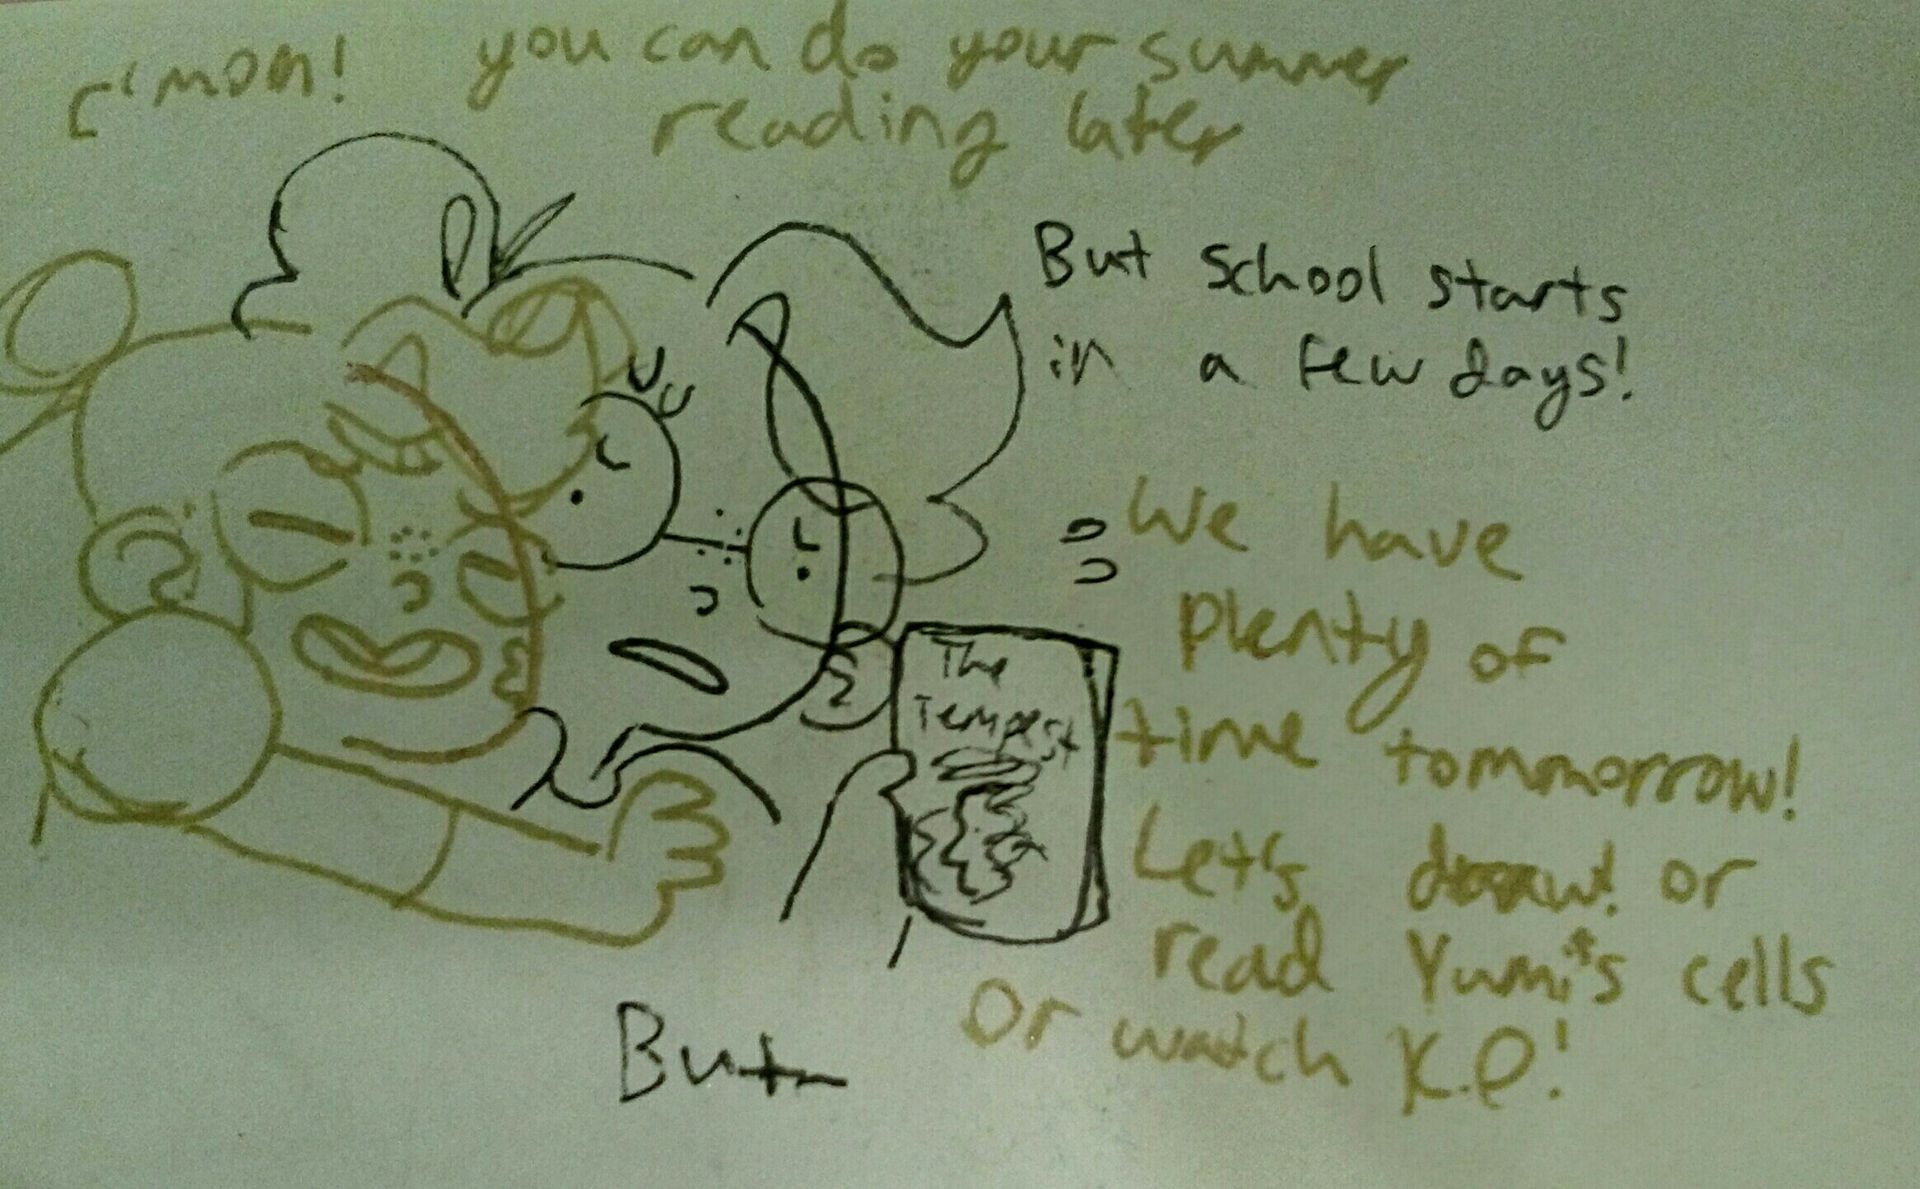 C'mon! you can do your summer
reading later
But school starts
in a few days!
We have
plenty of
time tommorrow!
Let's draw! or
read Yumi's cells
or watch K.O!
The
Tempest
But